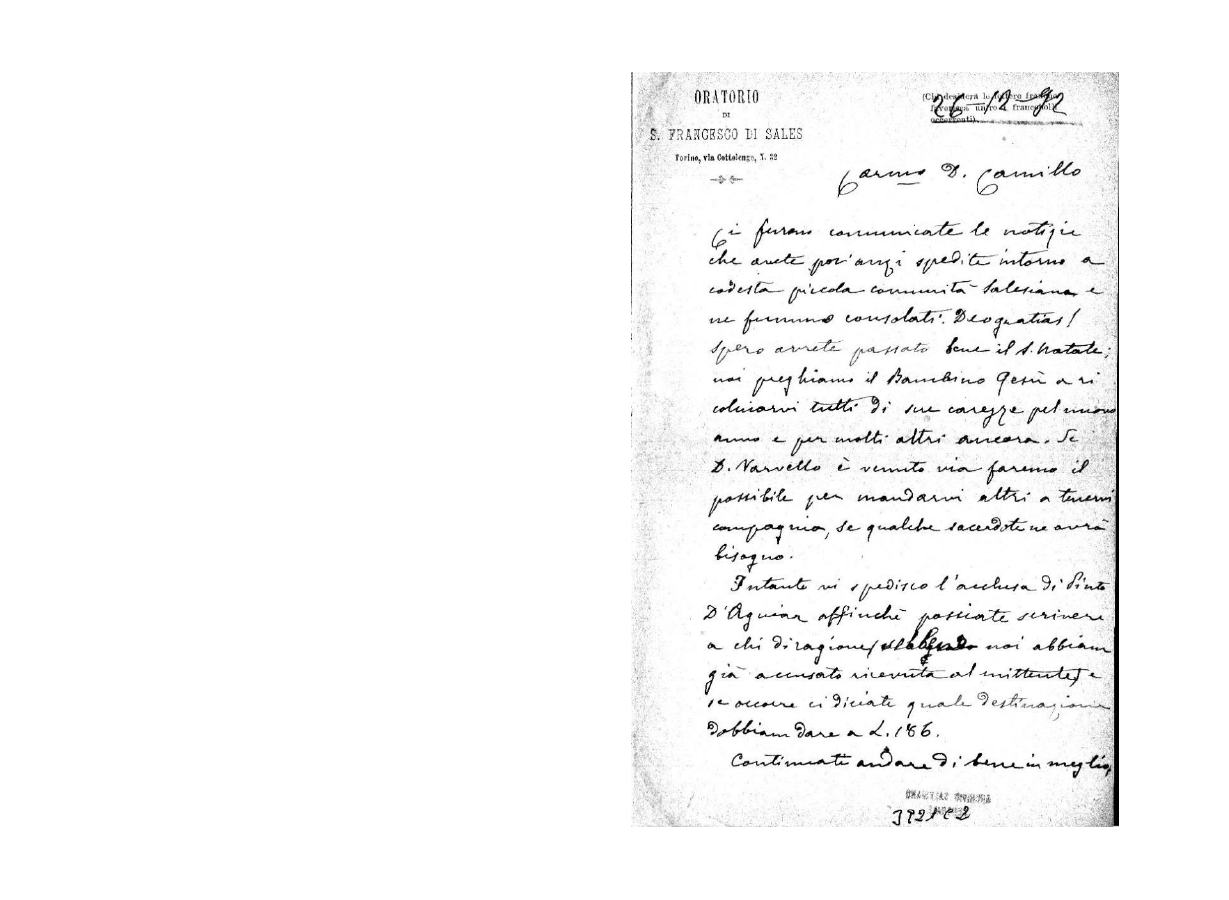 ORATORIO
DI
S. FRANCESCO DI SALES
Torino, via Cottolengo, N. 32
(Chi desidera lo
26-12-92
Carmo D. Camillo
Ci furono comunicate le notizie
che avete por'anzi spedite intorno a
codesta piccola comunità Salesiana e
ne fummo consolati. Deo gratias!
Spero avrete passato bene il S. Natale;
noi preghiamo il Bambino Gesù a ri
colmarvi tutti di sue carezze pel nuovo
anno e per molti altri ancora. Se
D. Varvello è venuto via faremo il
possibile per mandarvi altri a tenervi
compagnia, se qualche sacerdote ne avrà
bisogno.
Intanto vi spedisco l'acchiusa di Pinto
D'Aguiar affinchè possiate scrivere
a chi di ragione ( noi abbiam
già accusato ricevuta al mittente) e
se occorre ci diciate quale destinazione
dobbiam dare a L. 186.
Continuate andare di bene in meglio,